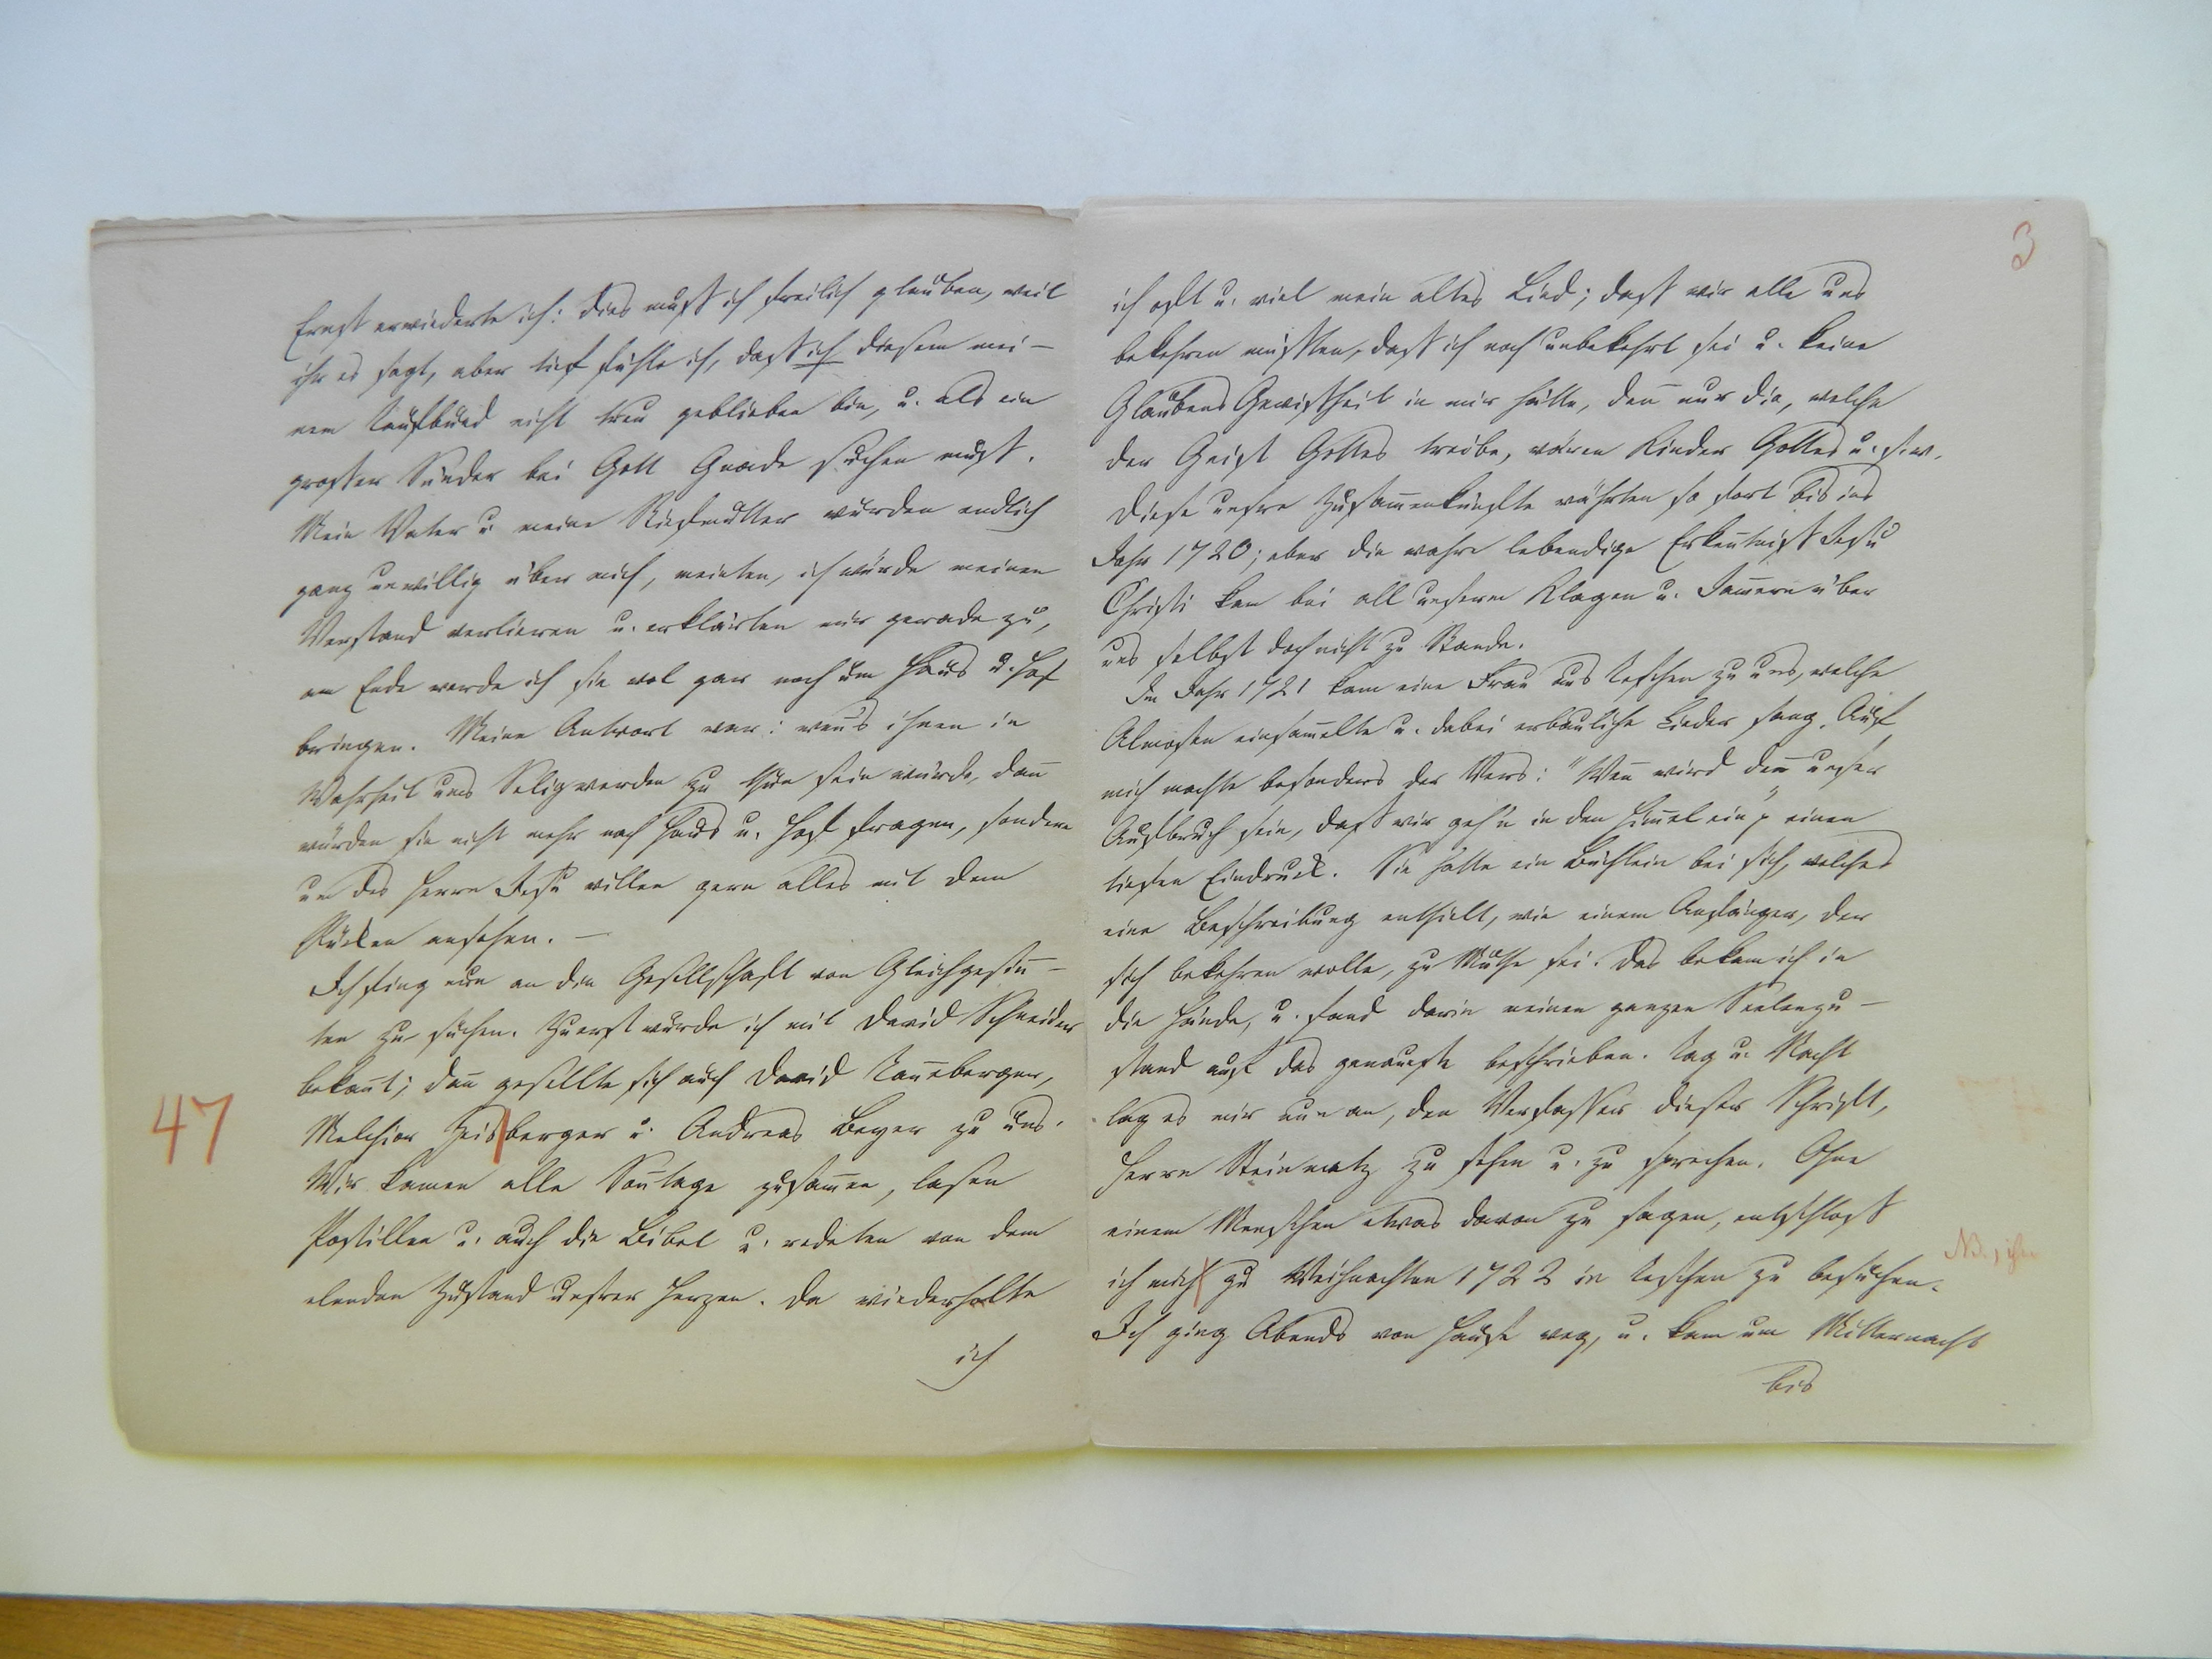 Ernst erwiederte ich: dies muß ich freilich glauben, weil
ihr es sagt, aber tief fühle ich, daß ich diesem mei-
nem Taufbund nicht treu geblieben bin, u. als ein
großer Sünder bei Gott Gnade suchen muß.
Mein Vater u. meine Stiefmutter wurden endlich
ganz unwillig über mich, meinten, ich würde meinen
Verstand verlieren u. erklärten mir gerade zu,
am Ende werde ich sie wol gar noch um Haus u. Hof
bringen. Meine Antwort war: wen̄'s ihnen in
Wahrheit ums Seligwerden zu thun sein würde, dan̄
würden sie nicht mehr nach Haus u. Hof fragen, sondern
um des Herrn Jesu willen gern alles mit dem
Rücken ansehen. —
Ich fing nun an die Gesellschaft von Gleichgesin̄-
ten zu suchen. Zuerst wurde ich mit David Schneider
bekan̄t; dan̄ gesellte sich auch David Tan̄eberger,
Melchior Zeisberger u. Andreas Beyer zu uns.
47
Wir kamen alle Son̄tage zusam̄en, lasen
Postillen u. auch die Bibel u. redeten von dem
elenden Zustand unsrer Herzen. Da wiederholte
ich
3
ich oft u. viel mein altes Lied; daß wir alle uns
bekehren müßten, daß ich noch unbekehrt sei u. keine
Glaubens Gewißheit in mir hätte, den̄ nur die, welche
der Geist Gottes treibe, wären Kinder Gottes u. s. w.
Diese unsre Zusam̄enkünfte währten so fort bis ins
Jahr 1720; aber die wahre lebendige Erken̄tniß Jesu
Christi kam bei all unserm Klagen u. Jam̄ern über
uns selbst doch nicht zu Stande.
Im Jahr 1721 kam eine Frau aus Teschen zu uns, welche
Almosen einsam̄elte u. dabei erbauliche Lieder sang. Auf
mich machte besonders der Vers: "Wen̄ wird den̄ unser
Aufbruch sein, daß wir geh'n in den Him̄el ein" einen
tiefen Eindruck. Sie hatte ein Büchlein bei sich, welches
eine Beschreibung enthielt, wie einem Anfänger, der
sich bekehren wolle, zu Muthe sei. Das bekam ich in
die Hände, u. fand darin meinen ganzen Seelenzu-
stand auf das genaueste beschrieben. Tag u. Nacht
lag es mir nun an, den Verfasser dieser Schrift,
Herrn Steinmetz zu sehen u. zu sprechen. Ohne
einem Menschen etwas davon zu sagen, entschloß
ich mich zu Weihnachten 1722 in Teschen zu besuchen.
NB., ihn
Ich ging Abends von Hause weg, u. kam um Mitternacht
bis